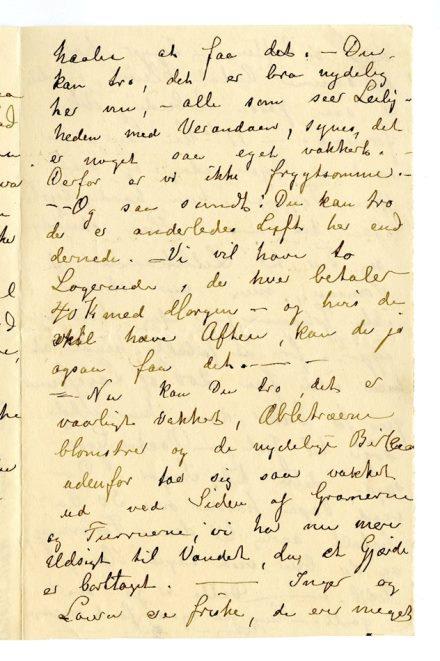 haaber at faa det. – Du
kan tro, det er bra nydelig
her nu, – alle som seer Leilig-
heden med Verandaen, synes, det
er noget saa eget vakkert. –
Derfor er vi ikke frygtsomme. –
– – Og saa sundt! Du kan tro
der er anderledes Luft her end
dernede. – Vi vil have to
Logerende, der hver betaler
40 k med Morgen – og hvis de
vil have Aften, kan de jo
ogsaa faa det. – – –
= Nu kan Du tro, det er
vaarligt vakkert, Æbletræerne
blomstrer og de nydelige
udenfor tar sig saa vakkert
ud ved Siden af Granerne
og Furruerne; vi har nu mere
Udsigt til Vandet, da et Gjærde
er borttaget. – Inger og
Laura er friske, de ere meget